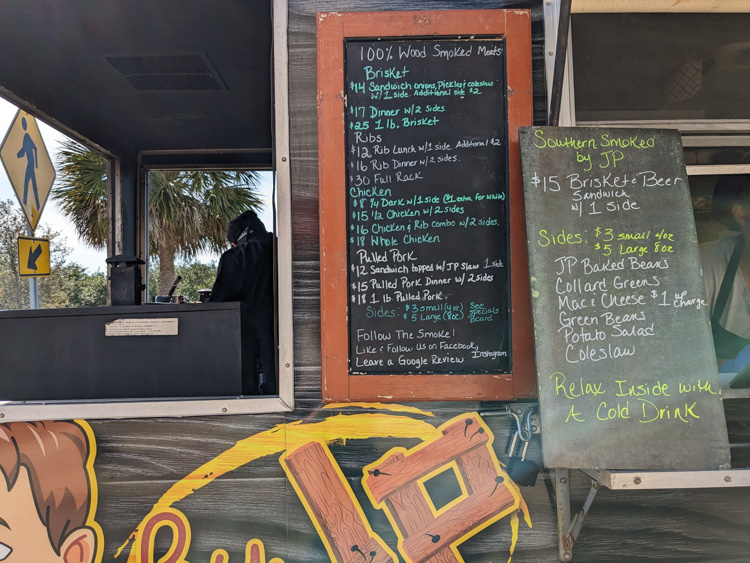 100% Wood Smoked Meats
Brisket
$14 Sandwich onions, Pickles & coleslaw
w/ 1 side. Additional side $2
$17 Dinner w/ 2 sides
$25 1 lb. Brisket
Ribs
$12 Rib Lunch w/ 1 side. Additional $2
$16 Rib Dinner w/ 2 sides.
$30 Full Rack
Chicken
$8 1/4 Dark w/ 1 side ($1 extra for White)
$15 1/2 Chicken w/ 2 sides
$16 Chicken & Rib combo w/ 2 sides.
$18 Whole Chicken
Pulled Pork
$12 Sandwich topped w/ JP Slaw 1 side
$15 Pulled Pork Dinner w/ 2 sides
$18 1 lb. Pulled Pork.
Sides: $3 small (4oz) See
$5 Large (8oz) Specials
Board
Follow The Smoke!
Like & Follow Us on Facebook,
Leave a Google Review Instagram
Southern Smoked
by JP
$15 Brisket & Beer
Sandwich
w/ 1 side
Sides: $3 small 4oz
$5 Large 8oz
JP Baked Beans
Collard Greens
Mac & Cheese $1 up
charge
Green Beans
Potato Salad
Coleslaw
Relax Inside with
A Cold Drink
By
JP